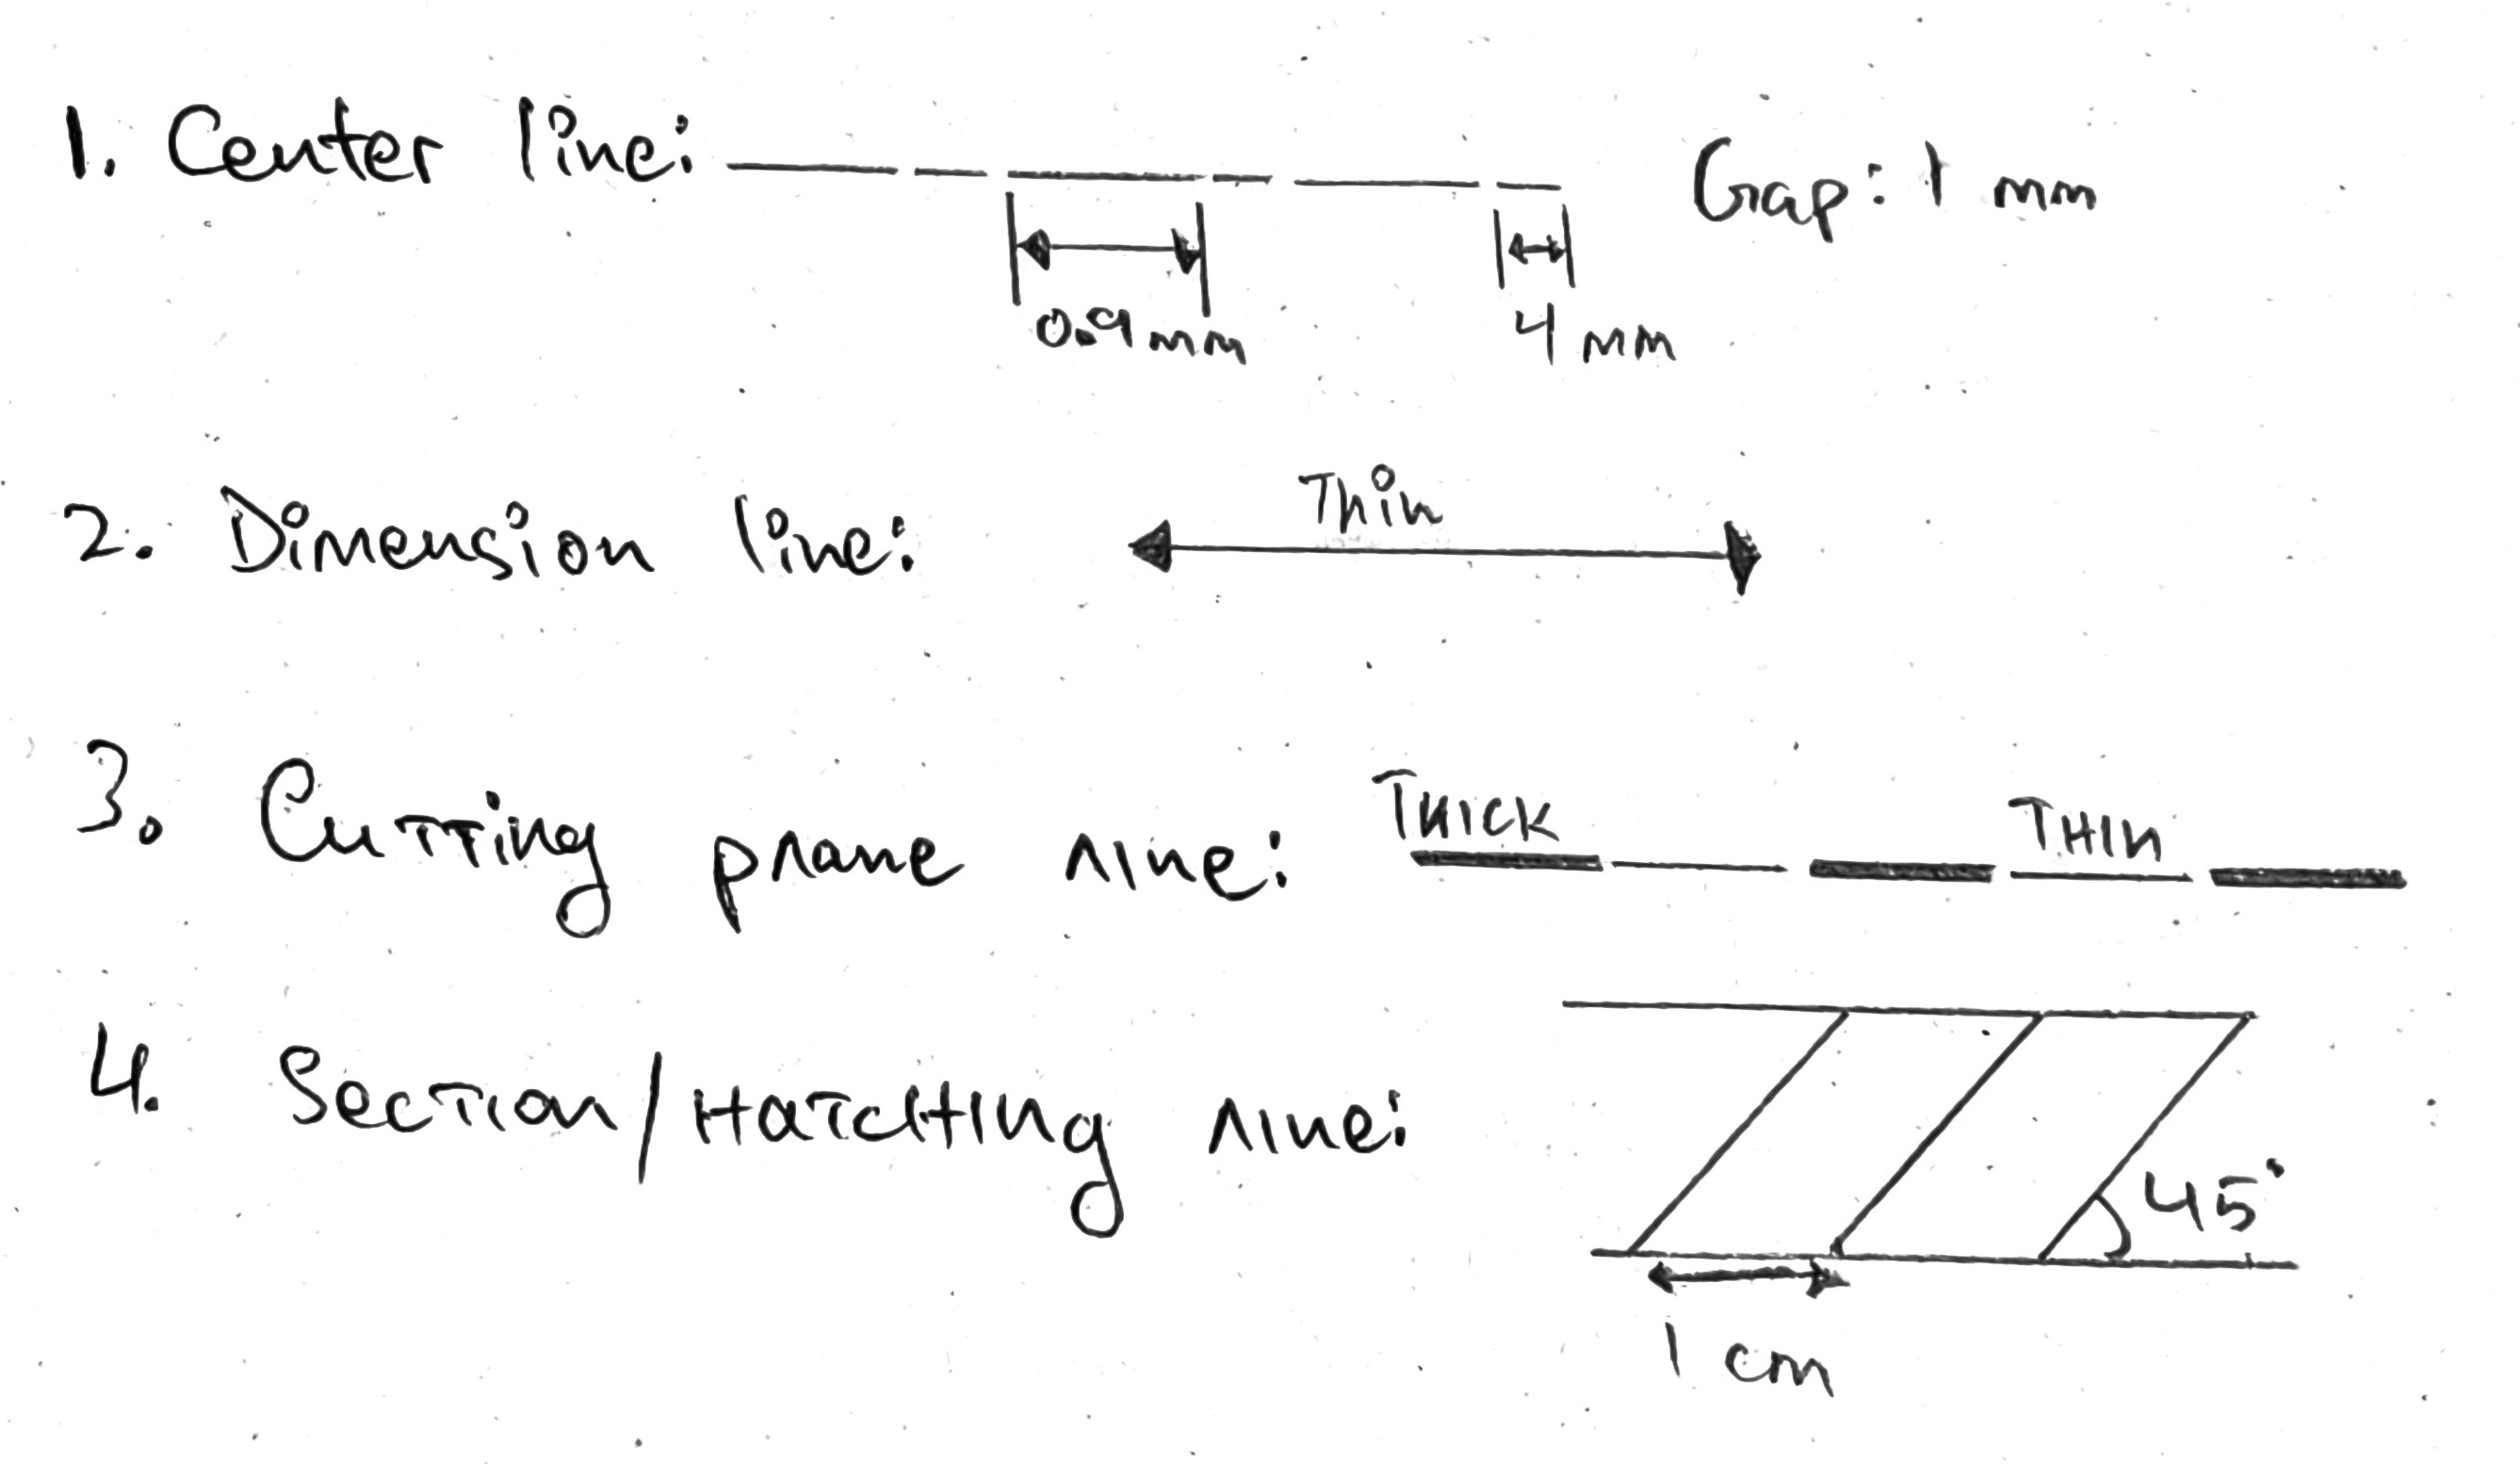 1. Center line: Gap: 1 mm
0.9mm 4 mm
2. Dimension line: Thin
3. Cutting plane line: THICK THIN
4. Section/Hatching line:
45°
1 cm